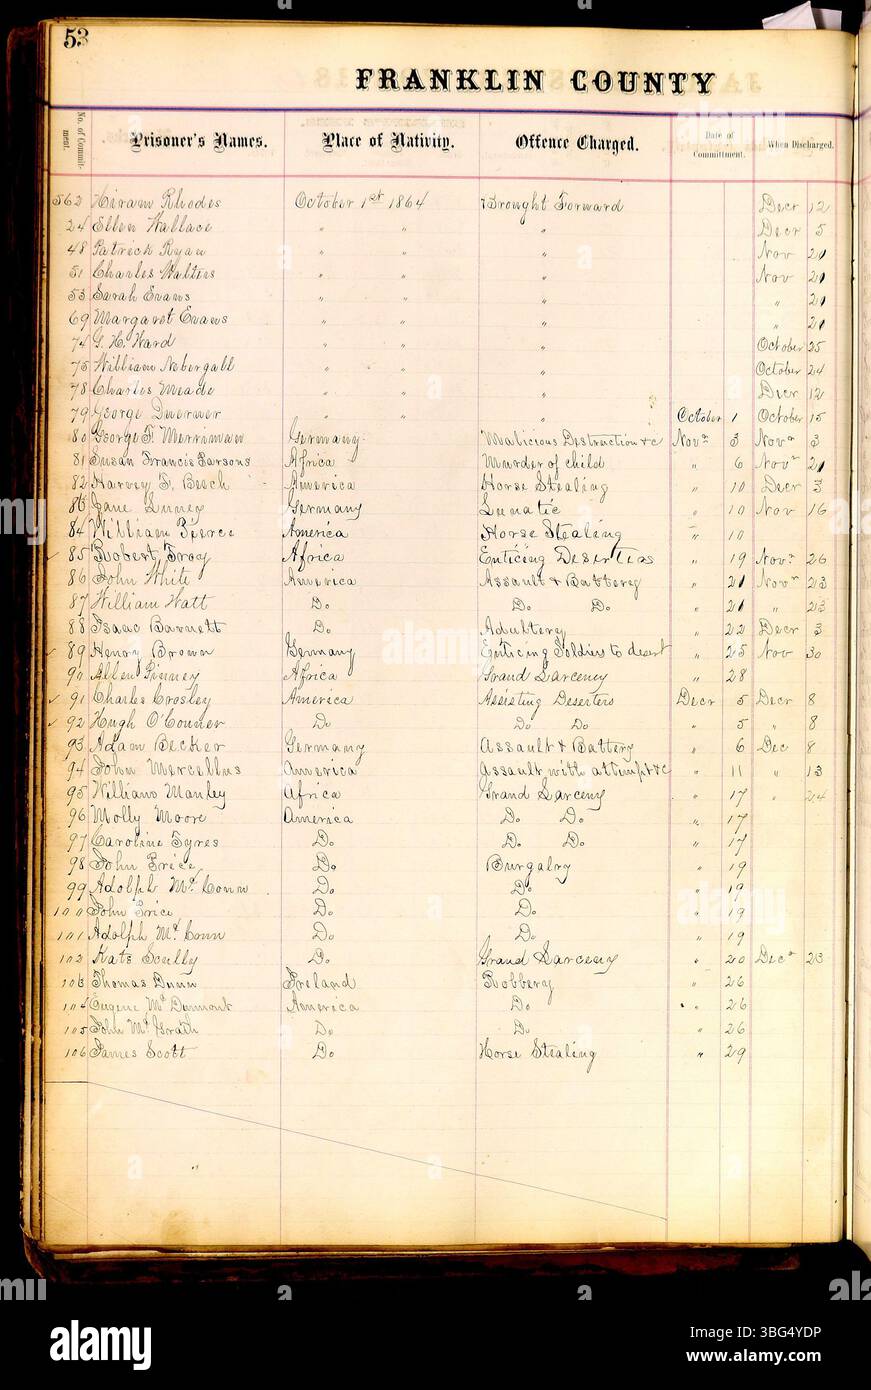 53
FRANKLIN COUNTY
No. of Commit-ment. Prisoner's Names. Place of Nativity. Offence Charged. Date of Committment. When Discharged.
562 Hiram Rhodes October 1st 1864 Brought Forward Decr 12
24 Ellen Wallace " " " Decr 5
48 Patrick Ryan " " " Nov 21
51 Charles Walters " " " Nov 21
53 Sarah Evans " " " " 21
69 Margaret Evans " " " " 21
74 G. H. Ward " " " October 25
75 William Nebergall " " " October 24
78 Charles Meade " " " Decr 12
79 George Duerwer " " " October 1 October 15
80 George F. Merriman Germany Malicious Destruction &c Novr 3 Novr 3
81 Susan Francis Parsons Africa Murder of child " 6 Novr 21
82 Harvey F. Beech America Horse Stealing " 10 Decr 3
83 Jane Germany Lunatic " 10 Nov 16
84 William Pierce America Horse Stealing " 10
85 Robert Troy Africa Enticing Deserters " 19 Novr 26
86 John White America Assault & Battery " 21 Novr 23
87 William Watt Do. Do. Do. " 21 " 23
88 Isaac Barnett Do. Adultery " 22 Decr 3
89 Henry Brown Germany Enticing Soldiers to desert " 25 Nov 30
90 Allen Pinney Africa Grand Larceny " 28
91 Charles Crosley America Assisting Deserters Decr 5 Decr 8
92 Hugh O'Conner Do Do Do " 5 " 8
93 Adam Becker Germany Assault & Battery " 6 Dec 8
94 John Mercellus America Assault with attempt &c " 11 " 13
95 William Manley Africa Grand Larceny " 17 " 24
96 Molly Moore America Do. Do. " 17
97 Caroline Syres Do. Do. Do. " 17
98 John Price Do. Burgalry " 19
99 Adolph McConn Do. Do. " 19
100 John Price Do. Do. " 19
101 Adolph McConn Do. Do. " 19
102 Kate Scully Do. Grand Larceny " 20 Decr 23
103 Thomas Dunn Ireland Robbery " 26
104 Eugene McDermont America Do. " 26
105 John McGrath Do. Do. " 26
106 James Scott Do. Horse Stealing " 29
alamy
Image ID: 3BG4YDP
www.alamy.com